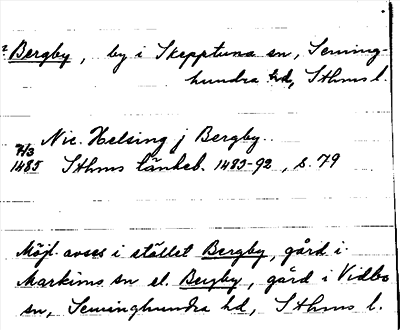 ? Bergby, by i Skepptuna sn, Seming-
hundra hd, Sthms l.
Nic. Helsing j Bergby.
7/3
1485 Sthms tänkeb. 1483-92, s. 79
Möjl. avses i stället Bergby, gård i
Markims sn el. Bergby, gård i Vidbo
sn, Seminghundra hd, Sthms l.